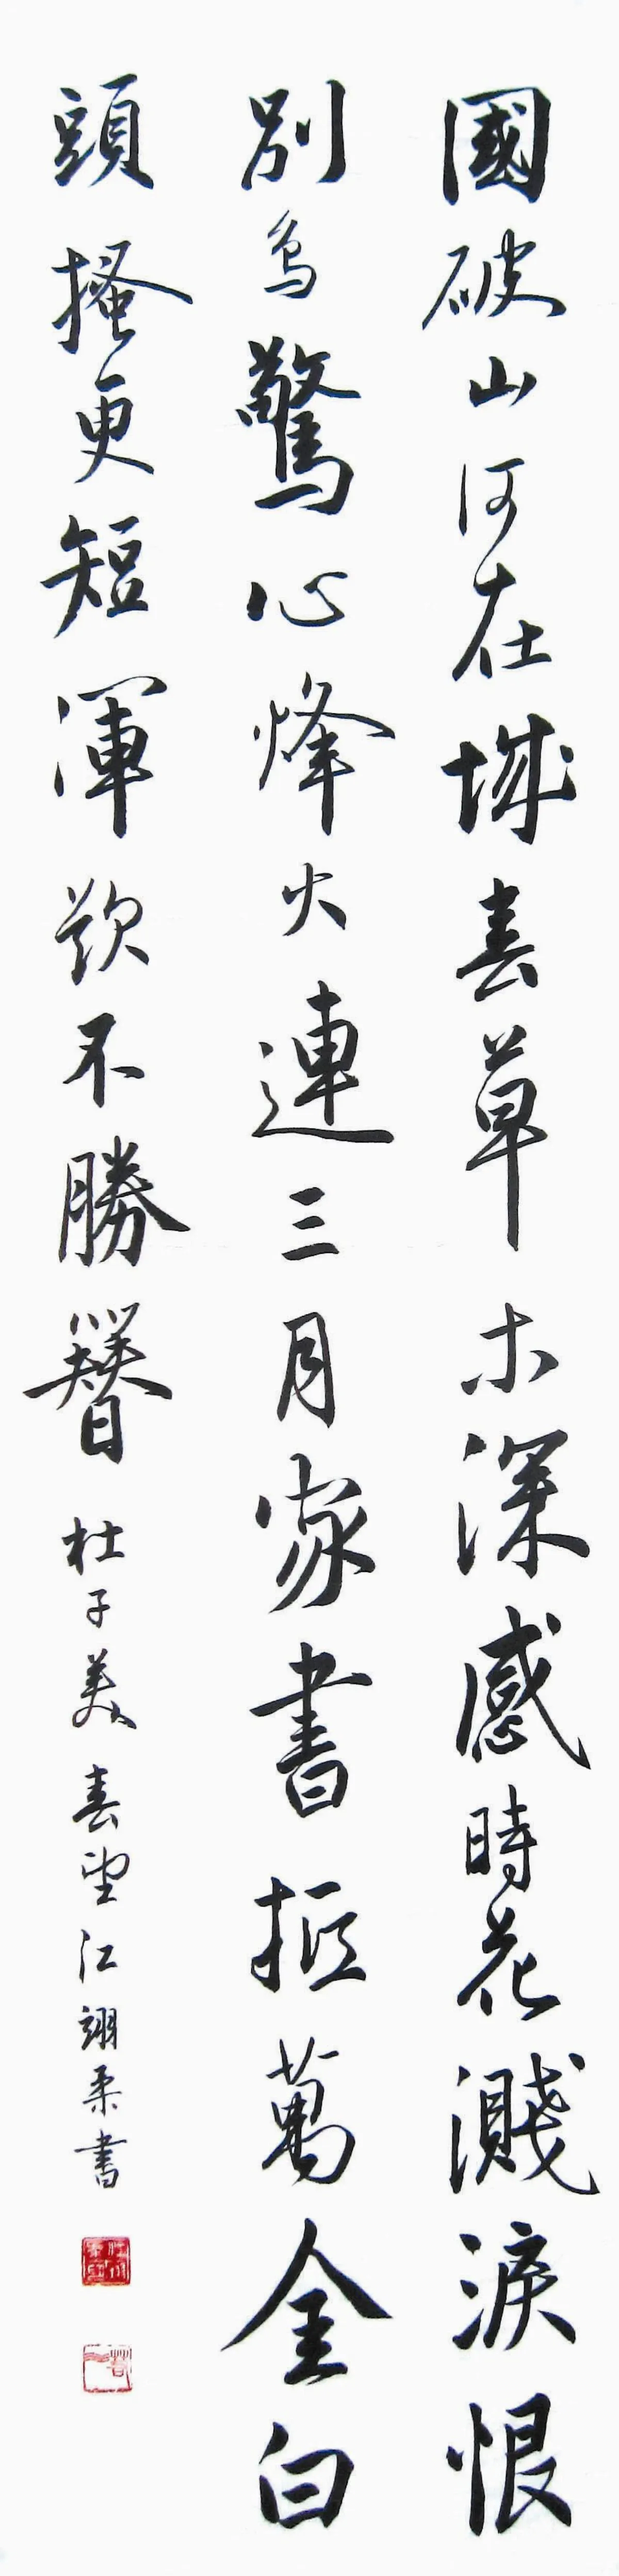 國破山河在城春草木深感時花濺淚恨
別鳥驚心烽火連三月家書抵萬金白
頭搔更短渾欲不勝簪 杜子美春望江翊柔書